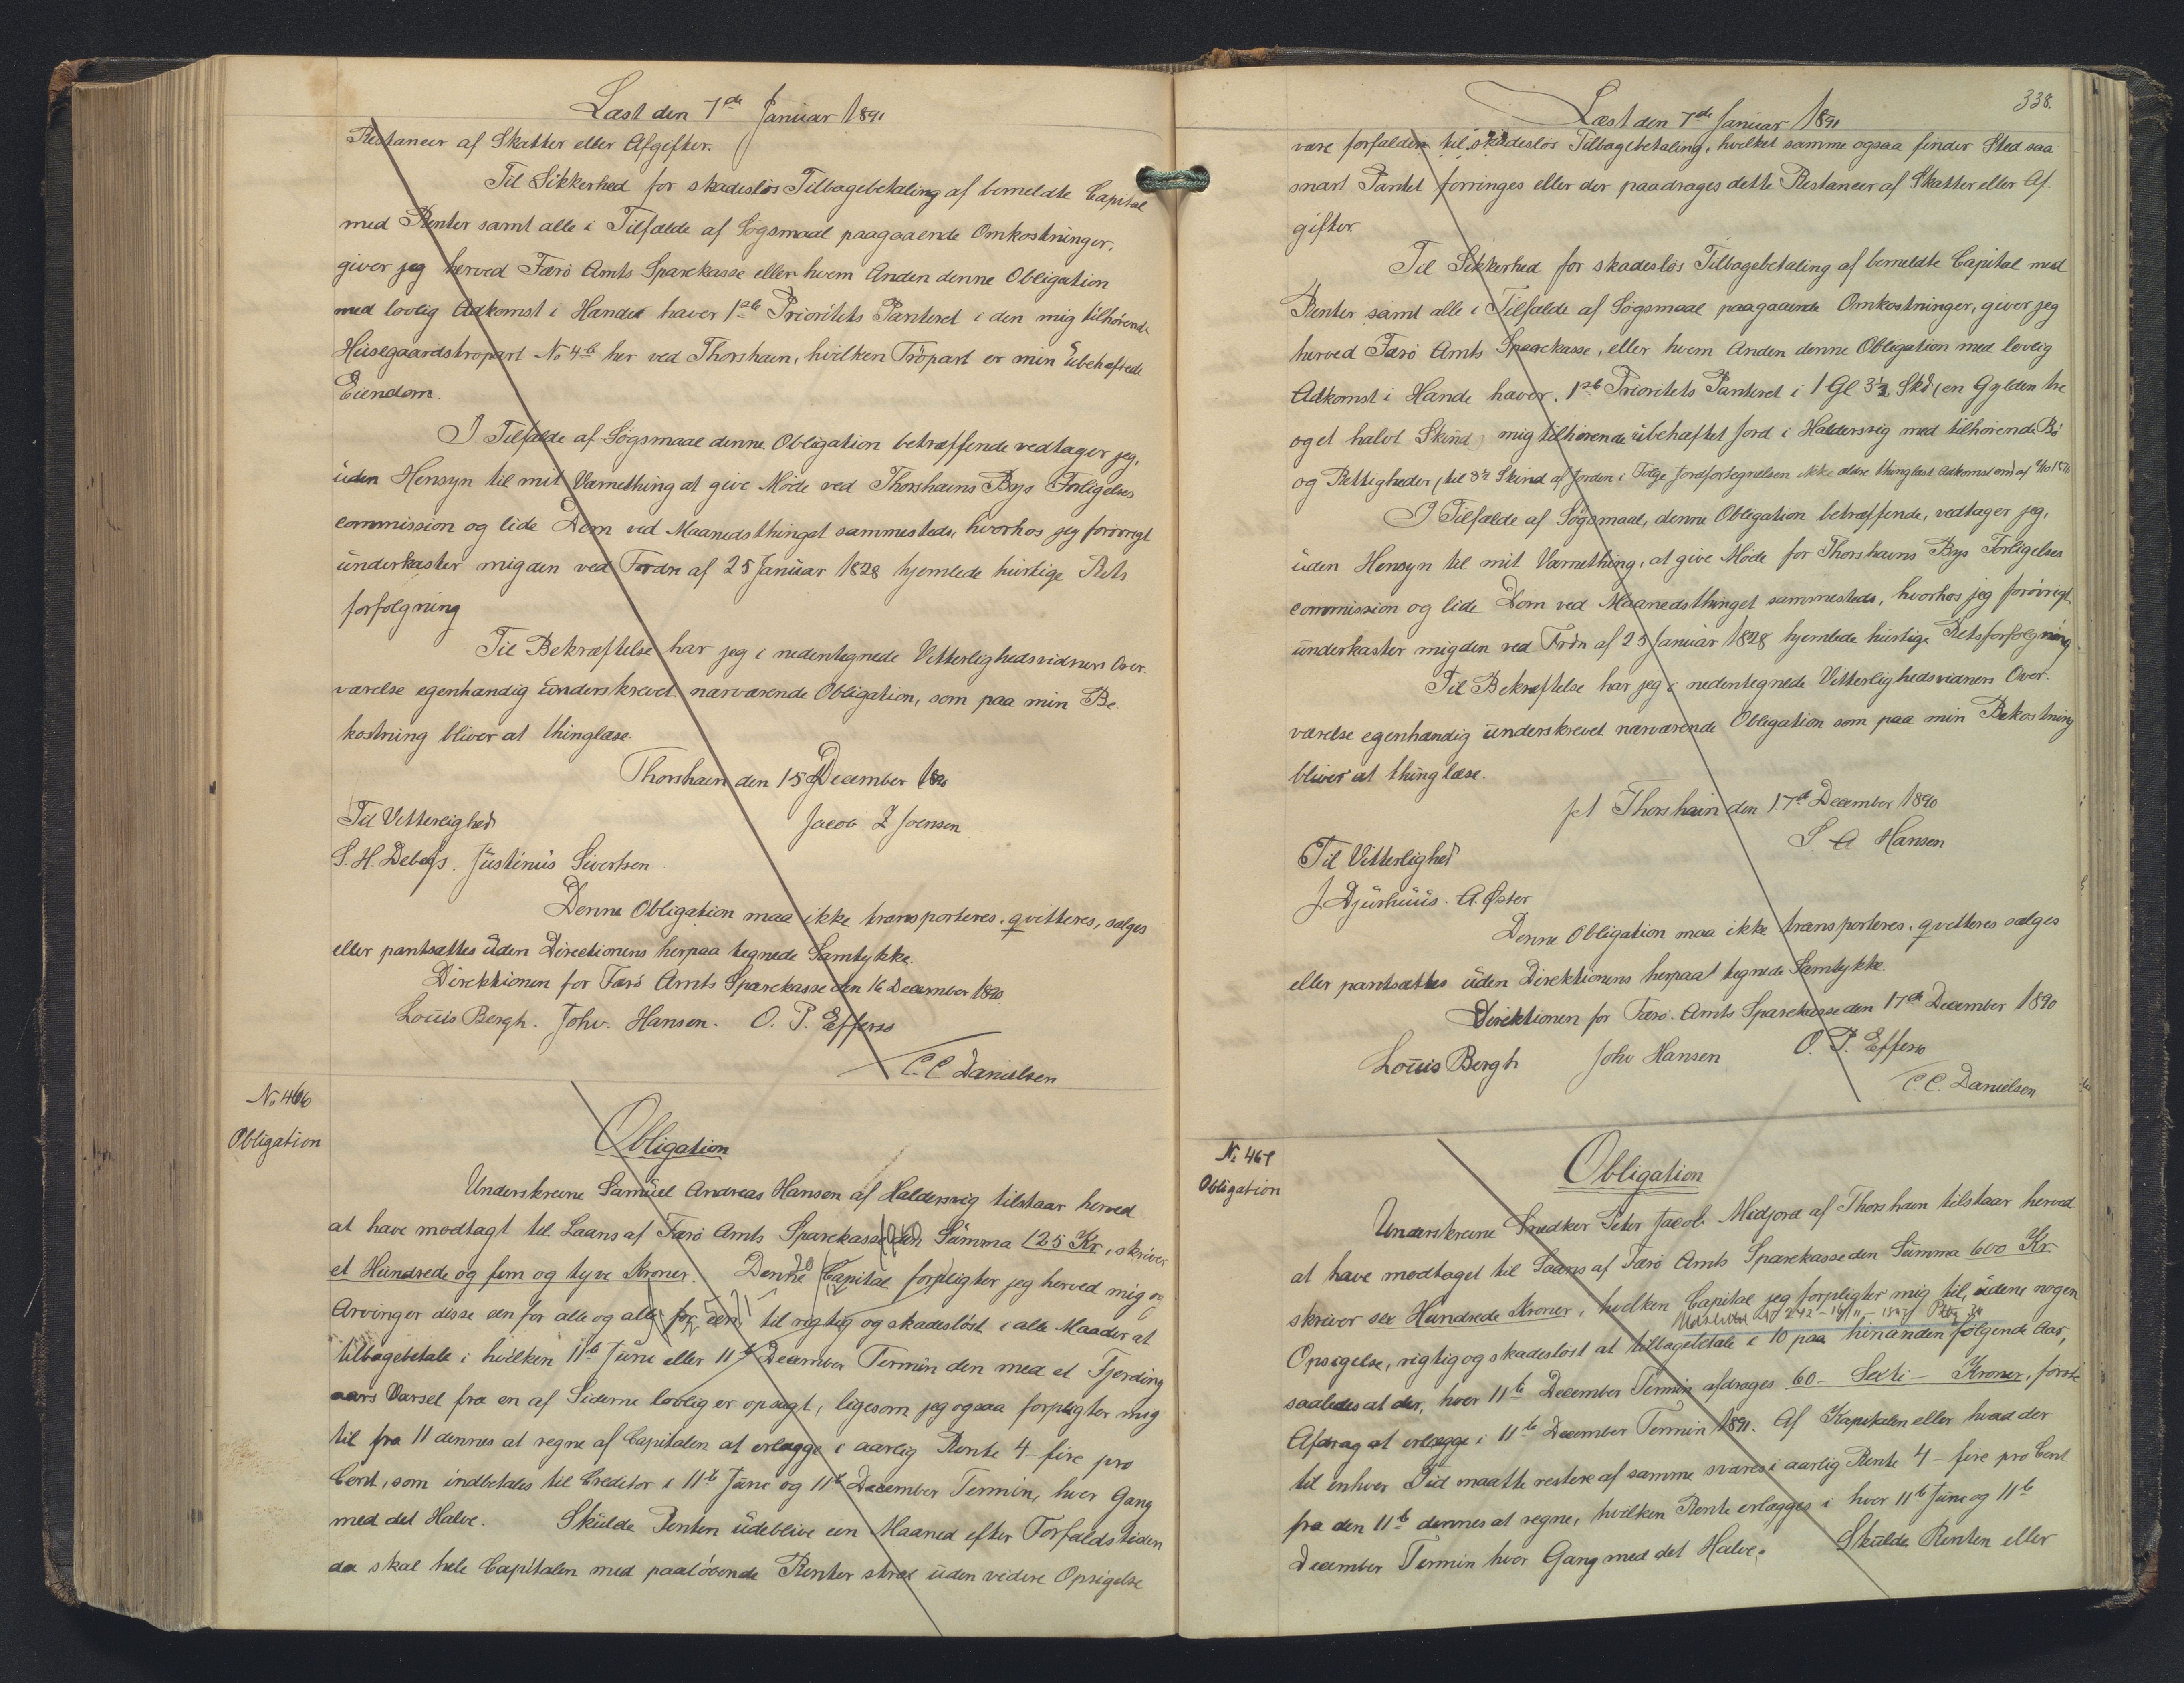 Læst den 7de Januar 1891
Restancer af Skatter eller Afgifter.
Til Sikkerhed for skadeslös Tilbagebetaling af bemeldte Capital
med Renter samt alle i Tilfælde af Søgsmaal paagaaende Omkostninger,
giver jeg herved Færö Amts Sparekasse eller hvem Anden denne Obligation
med lovlig Adkomst i Hænder haver 1ste Prioritets Panteret i den mig tilhörende
Huusegaardstropart No 4b her ved Thorshavn, hvilken Tröpart er min ubehæftede
Eiendom.
I Tilfælde af Søgsmaal denne Obligation betræffende vedtager jeg,
uden Hensyn til mit Værnething at give Möde ved Thorshavns Bys Forligelses
commission og lide Dom ved Maanedsthinget sammesteds, hvorhos jeg forövrigt
underkaster mig den ved Frdn af 25 Januar 1828 hjemlede hurtige Rets
forfølgning
Til Bekræftelse har jeg i nedentegnede Vitterlighedsvidners Over-
værelse egenhændig underskrevet nærværende Obligation, som paa min Be-
kostning bliver at thinglæse.
Thorshavn den 15 December 1890
Til Vitterlighed Jacob Z Joensen
S. H. Debes. Justinus Sivertsen
Denne Obligation maa ikke transporteres, qvitteres, sælges
eller pantsættes uden Directionens herpaa tegnede Samtykke.
Direktionen for Færö Amts Sparekasse den 16 December 1890
Louis Bergh. Johs. Hansen. O. P. Effersö
C. C. Danielsen
No 466
Obligation
Obligation
Underskrevne Samuel Andreas Hansen af Haldersvig tilstaar herved
at have modtagt til Laans af Færö Amts Sparekasse den Summa 125 Kr, skriver
et Hundrede og fem og tyve Kroner. Denne Capital forpligter jeg herved mig og
Arvinger disse een for alle og alle for een, til rigtig og skadeslöst i alle Maader at
tilbagebetale i hvilken 11te Juni eller 11te December Termin den med et Fjerding
aars Varsel fra en af Siderne lovlig er opsagt, ligesom jeg ogsaa forpligter mig
til fra 11 dennes at regne af Capitalen at erlægge i aarlig Rente 4 - fire pro
Cent, som indbetales til Creditor i 11te Juni og 11te December Termin, hver Gang
med det Halve. Skulde Renten udeblive een Maaned efter Forfaldstiden
da skal hele Capitalen med paalöbende Renter strax uden videre Opsigelse
338.
Læst den 7de Januar 1891
være forfalden til skadeslös Tilbagebetaling, hvilket samme ogsaa finder Sted saa
snart Pantet forringes eller der paadrages dette Restancer af Skatter eller Af-
gifter.
Til Sikkerhed for skadeslös Tilbagebetaling af bemeldte Capital med
Renter samt alle i Tilfælde af Søgsmaal paagaaende Omkostninger, giver jeg
herved Færö Amts Sparekasse, eller hvem Anden denne Obligation med lovlig
Adkomst i Hænde haver, 1ste Prioritets Panteret i 1 Gl 3½ Skd (en Gylden tre
og et halvt Skind) mig tilhörende ubehæftet Jord i Haldersvig med tilhörende Bö
og Rettigheder (til 8½ Skind af Jorden i Følge Jordfortegnelsen ikke ældre thinglæst Adkomst end af
I Tilfælde af Søgsmaal, denne Obligation betræffende, vedtager jeg,
uden Hensyn til mit Værnething, at give Möde for Thorshavns Bys Forligelses
commission og lide Dom ved Maanedsthinget sammesteds, hvorhos jeg forövrigt
underkaster mig den ved Frdn af 25 Januar 1828 hjemlede hurtige Retsforfølgning
Til Bekræftelse har jeg i nedentegnede Vitterlighedsvidners Over-
værelse egenhændig underskrevet nærværende Obligation som paa min Bekostning
bliver at thinglæse.
pt Thorshavn den 17de December 1890
S A Hansen
Til Vitterlighed
J. Djurhuus. A. Øster
Denne Obligation maa ikke transporteres, qvitteres sælges
eller pantsættes uden Direktionens herpaa tegnede Samtykke.
Direktionen for Færö Amts Sparekasse den 17de December 1890
Louis Bergh Johs Hansen O. P. Effersö
C. C. Danielsen
No 467
Obligation
Obligation
Underskrevne Snedker Peter Jacob Midjord af Thorshavn tilstaar herved
at have modtaget til Laans af Færö Amts Sparekasse den Summa 600 Kr
skriver sex Hundrede Kroner, hvilken Capital jeg forpligter mig til, udene nogen
Opsigelse, rigtig og skadeslöst at tilbagebetale i 10 paa hinanden følgende Aar,
saaledes at der, hver 11te December Termin afdrages 60 - Sexti - Kroner, förste
Afdrag at erlægge i 11te December Termin 1891. Af Kapitalen eller hvad der
til enhver Tid maatte restere af samme svares i aarlig Rente 4 - fire pro Cent
fra den 11te dennes at regne, hvilken Rente erlægges i hver 11te Juni og 11te
December Termin hver Gang med det Halve. Skulde Renten eller